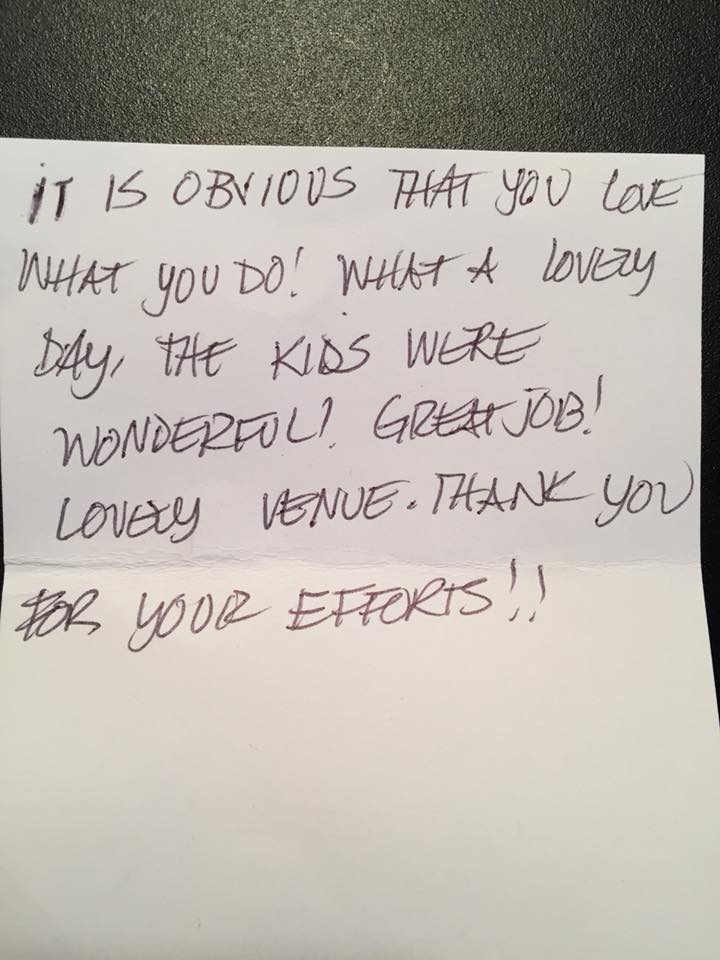 iT IS OBVIOUS THAT YOU LOVE
WHAT YOU DO! WHAT A LOVELY
DAY, THE KIDS WERE
WONDERFUL! GREAT JOB!
LOVELY VENUE. THANK YOU
FOR YOUR EFFORTS!!